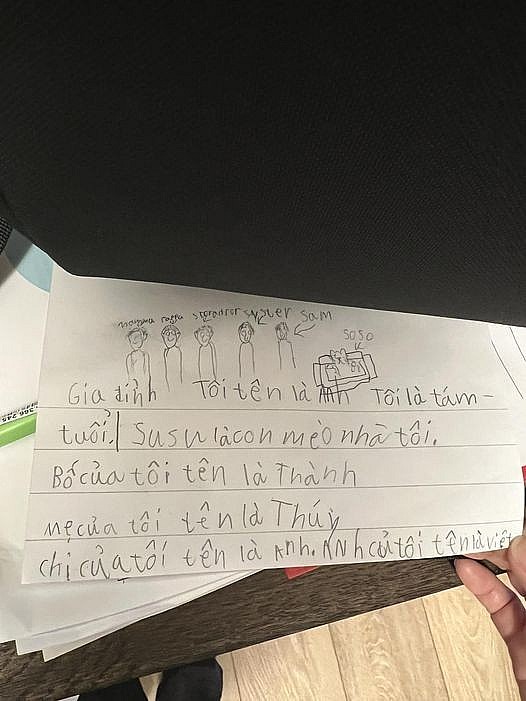 mamma pappa syster sam
soso
Gia đình Tôi tên là Anh Tôi là tám-
tuổi. Susu là con mèo nhà tôi.
Bố của tôi tên là Thành
mẹ của tôi tên là Thúy
chị của tôi tên là Anh. ANh củ tôi tên là việt